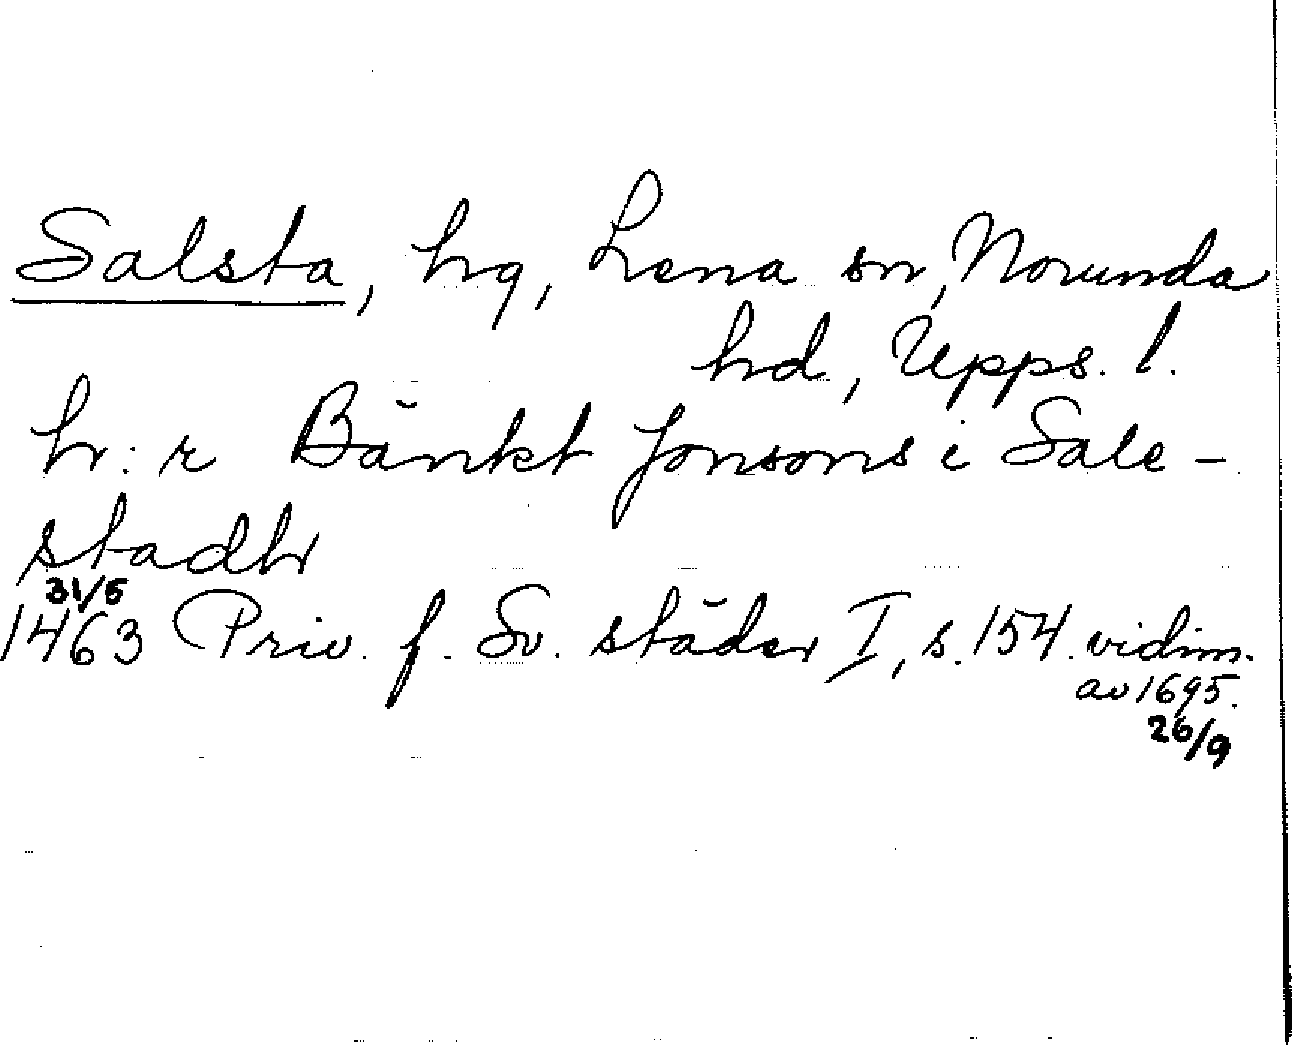 Salsta, hg, Lena sn, Norunda
hd, Upps. l.
hr: r Bänkt Jonsons i Sale-
stadhr
31/5
1463 Priv. f. Sv. städer I, s. 154. vidim.
av 1695.
26/9